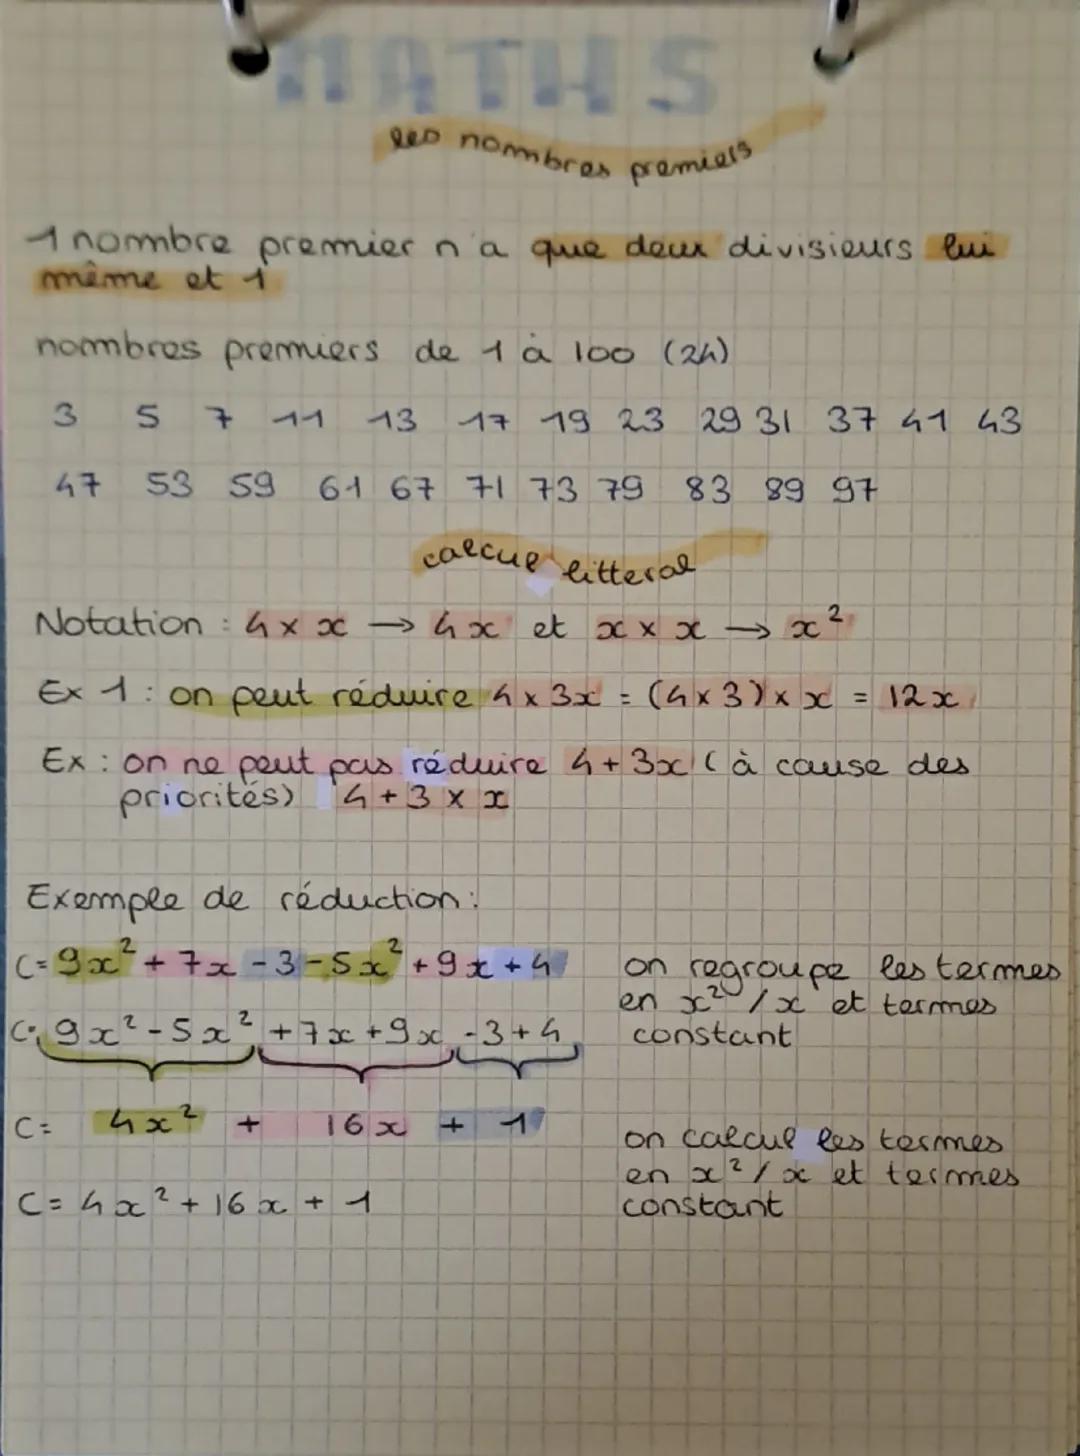 MATHS
les nombres premiers
1 nombre premier n'a que deux divisieurs lui
même et 1
nombres premiers de 1 à 100 (24)
3 5 7 11 13 17 19 23 29 31 37 41 43
47 53 59 61 67 71 73 79 83 89 97
calcul litteral
Notation : 4 × x → 4x et x × x → x²
Ex 1 : on peut réduire 4 × 3x = (4 × 3) × x = 12x
Ex : on ne peut pas réduire 4 + 3x ( à cause des
priorités) 4 + 3 × x
Exemple de réduction :
C = 9x² + 7x - 3 - 5x² + 9x + 4 on regroupe les termes
en x² / x et termes
C = 9x² - 5x² + 7x + 9x - 3 + 4 constant
C = 4x² + 16x + 1
on calcul les termes
en x² / x et termes
C = 4x² + 16x + 1 constant